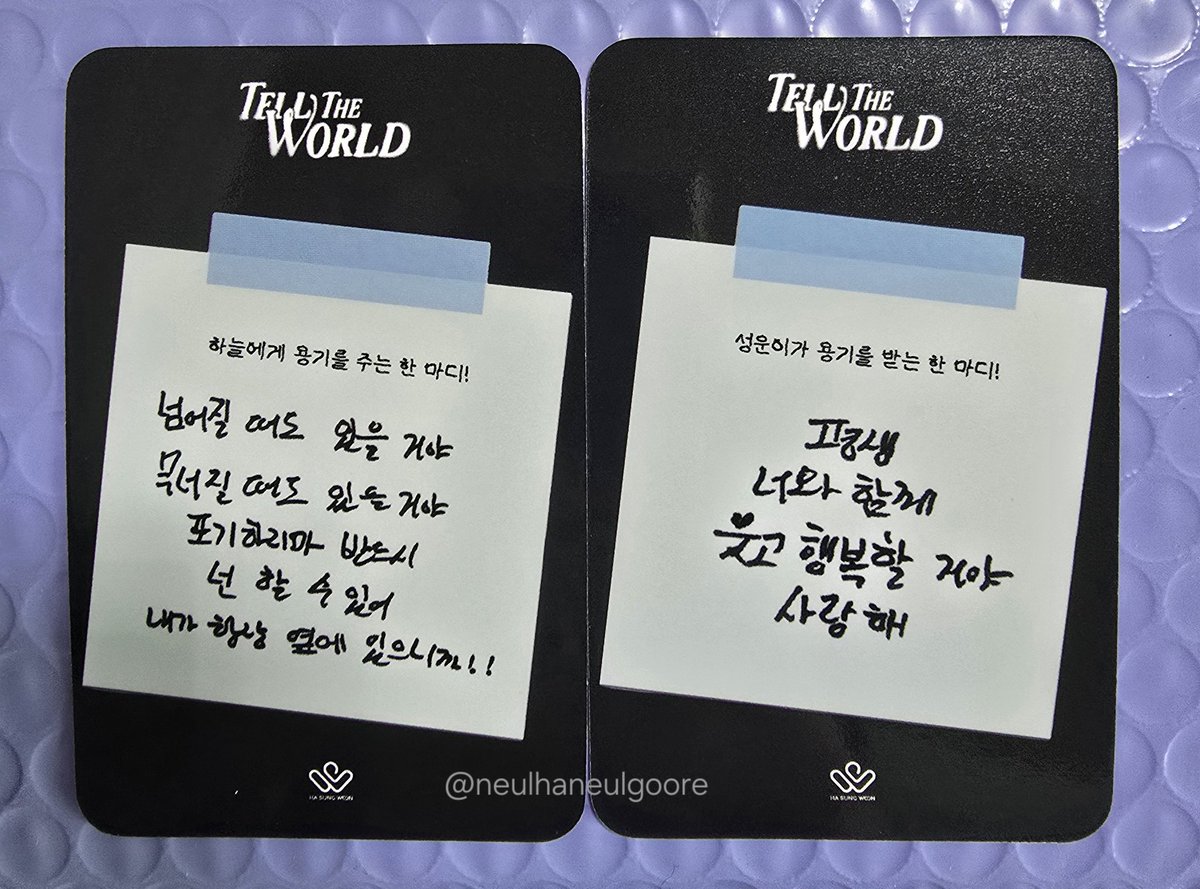 TELL THE
WORLD
하늘에게 용기를 주는 한 마디!
넘어질 때도 있을 거야
무너질 때도 있을 거야
포기하지마 반드시
넌 할 수 있어
내가 항상 옆에 있으니까!!
HA SUNG WOON
TELL THE
WORLD
성운이가 용기를 받는 한 마디!
평생
너와 함께
웃고 행복할 거야
사랑해
HA SUNG WOON
@neulhaneulgoore